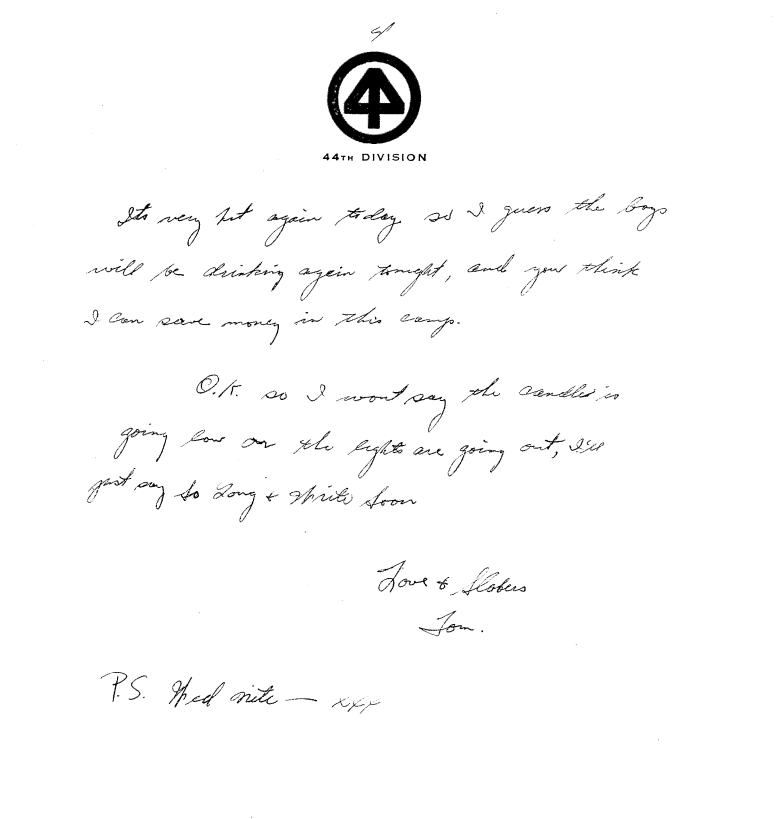 4/
44TH DIVISION
Its very hot again today so I guess the boys
will be drinking again tonight, and you think
I can save money in this camp.
O.K. so I wont say the candles is
going low or the lights are going out, I'll
just say So Long & Write Soon
Love & Slobers
Tom.
P.S. Wed nite — xxx